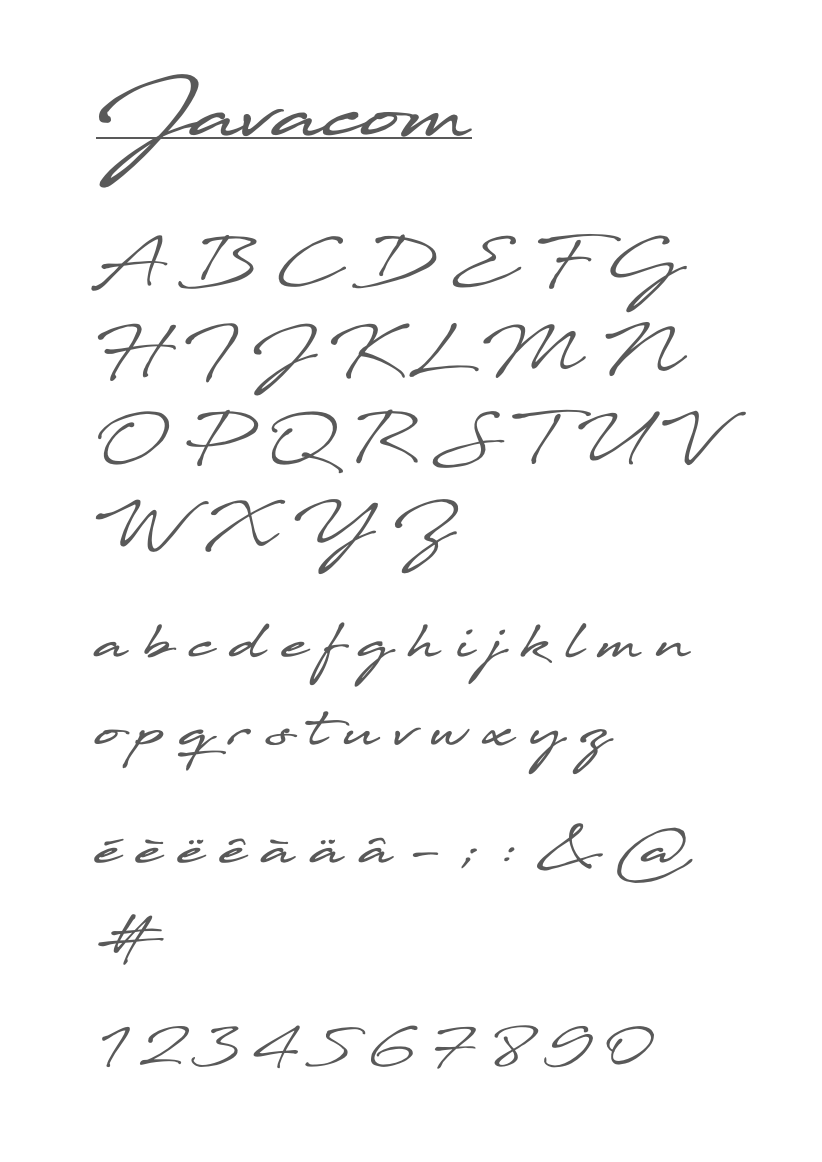 Javacom
A B C D E F G
H I J K L M N
O P Q R S T U V
W X Y Z
a b c d e f g h i j k l m n
o p q r s t u v w x y z
é è ë ê à ä â - ; : & @
#
1 2 3 4 5 6 7 8 9 0